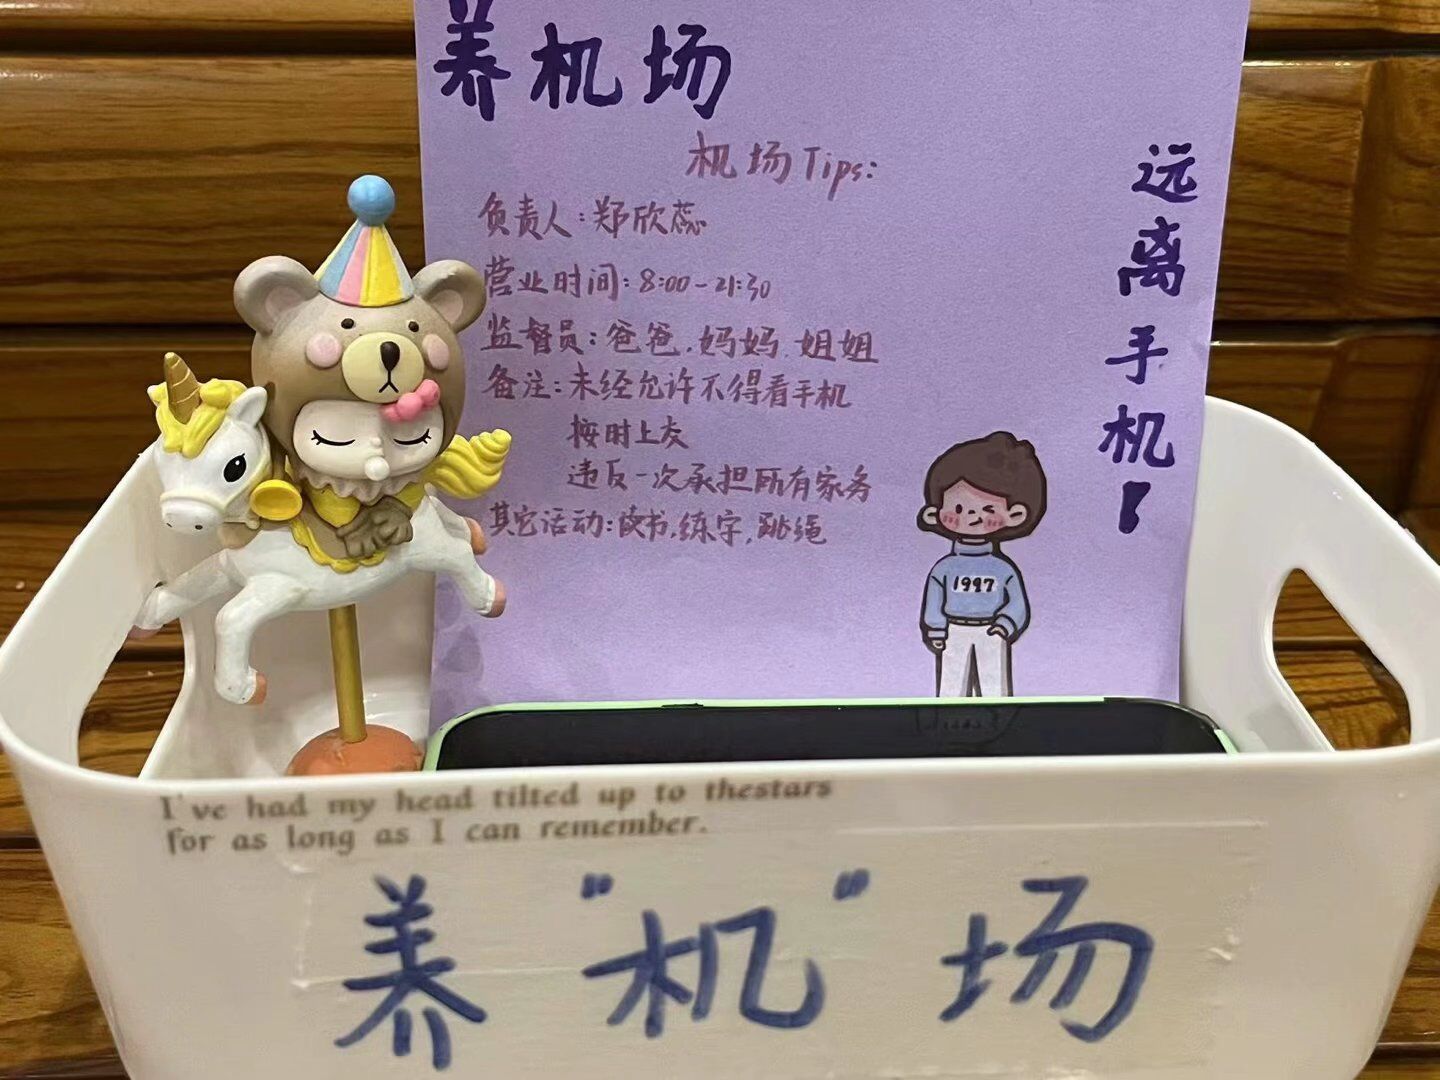 养机场
机场Tips:
负责人:郑欣蕊
营业时间:8:00-21:30
监督员:爸爸,妈妈,姐姐
备注:未经允许不得看手机
按时上交
违反一次承担所有家务
其它活动:读书,练字,跳绳
远离手机!
1997
I've had my head tilted up to thestars
for as long as I can remember.
养"机"场